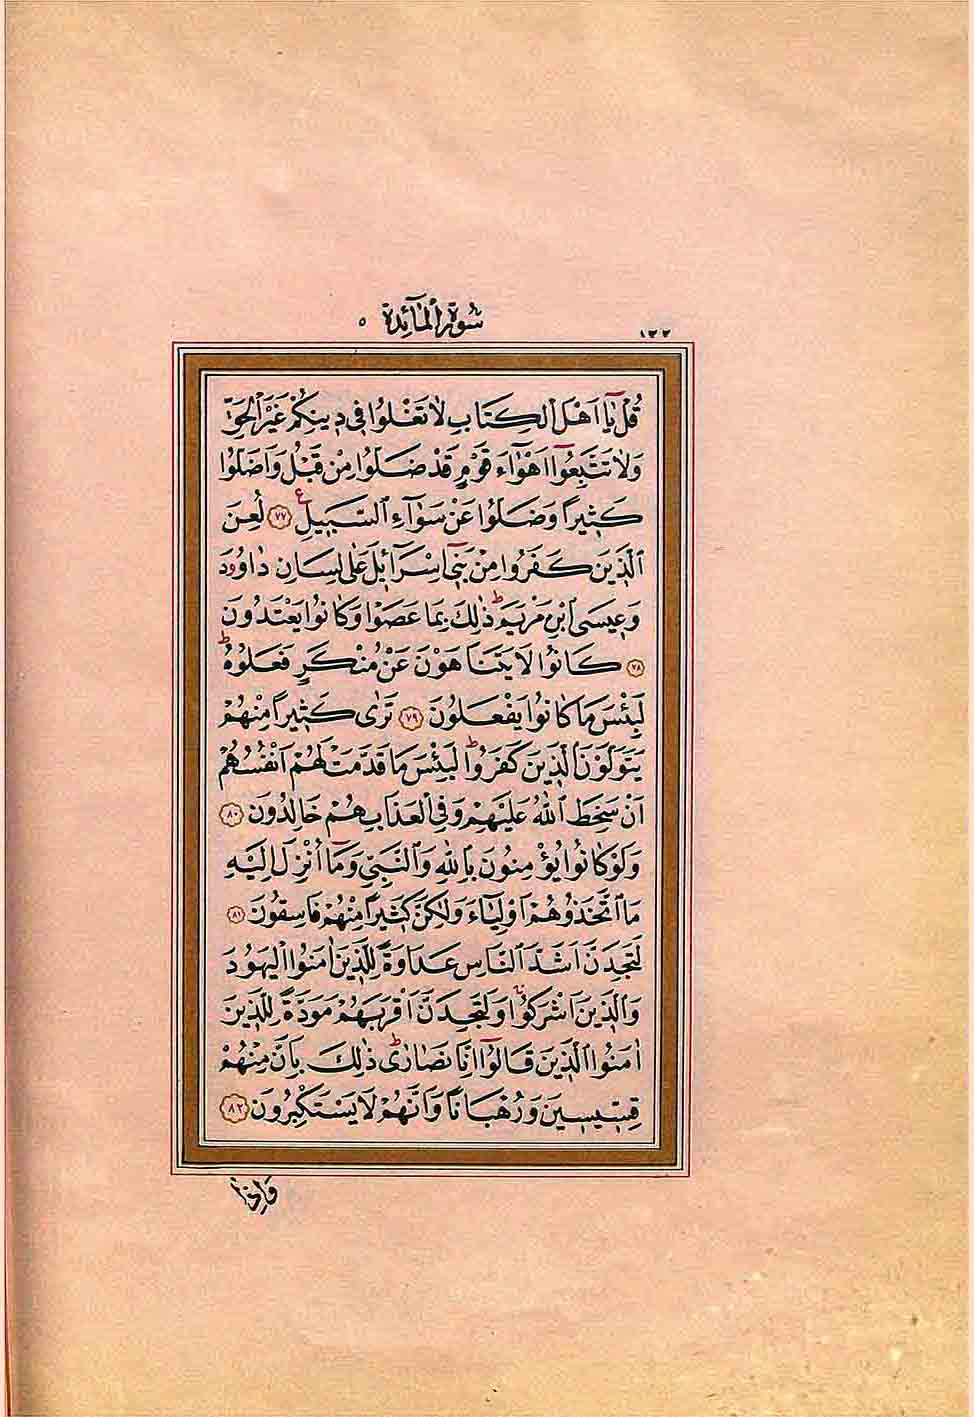 ١٢٢
سُورَةُ الْمَآئِدَةِ ٥
قُلْ يَٓا اَهْلَ الْكِتَابِ لَا تَغْلُوا فٖي دٖينِكُمْ غَيْرَ الْحَقِّ
وَلَا تَتَّبِعُٓوا اَهْوَٓاءَ قَوْمٍ قَدْ ضَلُّوا مِنْ قَبْلُ وَاَضَلُّوا
كَثٖيرًا وَضَلُّوا عَنْ سَوَٓاءِ السَّبٖيلِ ع ﴿٧٧﴾ لُعِنَ
الَّذٖينَ كَفَرُوا مِنْ بَنٖٓي اِسْرَٓائٖلَ عَلٰى لِسَانِ دَاوُودَ
وَعٖيسَى ابْنِ مَرْيَمَ ط ذٰلِكَ بِمَا عَصَوْا وَكَانُوا يَعْتَدُونَ
﴿٧٨﴾ كَانُوا لَا يَتَنَاهَوْنَ عَنْ مُنْكَرٍ فَعَلُوهُ ط
لَبِئْسَ مَا كَانُوا يَفْعَلُونَ ﴿٧٩﴾ تَرٰى كَثٖيرًا مِنْهُمْ
يَتَوَلَّوْنَ الَّذٖينَ كَفَرُوا ط لَبِئْسَ مَا قَدَّمَتْ لَهُمْ اَنْفُسُهُمْ
اَنْ سَخِطَ اللّٰهُ عَلَيْهِمْ وَفِي الْعَذَابِ هُمْ خَالِدُونَ ﴿٨٠﴾
وَلَوْ كَانُوا يُؤْمِنُونَ بِاللّٰهِ وَالنَّبِيِّ وَمَٓا اُنْزِلَ اِلَيْهِ
مَا اتَّخَذُوهُمْ اَوْلِيَٓاءَ وَلٰكِنَّ كَثٖيرًا مِنْهُمْ فَاسِقُونَ ﴿٨١﴾
لَتَجِدَنَّ اَشَدَّ النَّاسِ عَدَاوَةً لِلَّذٖينَ اٰمَنُوا الْيَهُودَ
وَالَّذٖينَ اَشْرَكُوا وَلَتَجِدَنَّ اَقْرَبَهُمْ مَوَدَّةً لِلَّذٖينَ
اٰمَنُوا الَّذٖينَ قَالُٓوا اِنَّا نَصَارٰى ط ذٰلِكَ بِاَنَّ مِنْهُمْ
قِسّٖيسٖينَ وَرُهْبَانًا وَاَنَّهُمْ لَا يَسْتَكْبِرُونَ ﴿٨٢﴾
وَاِذَا